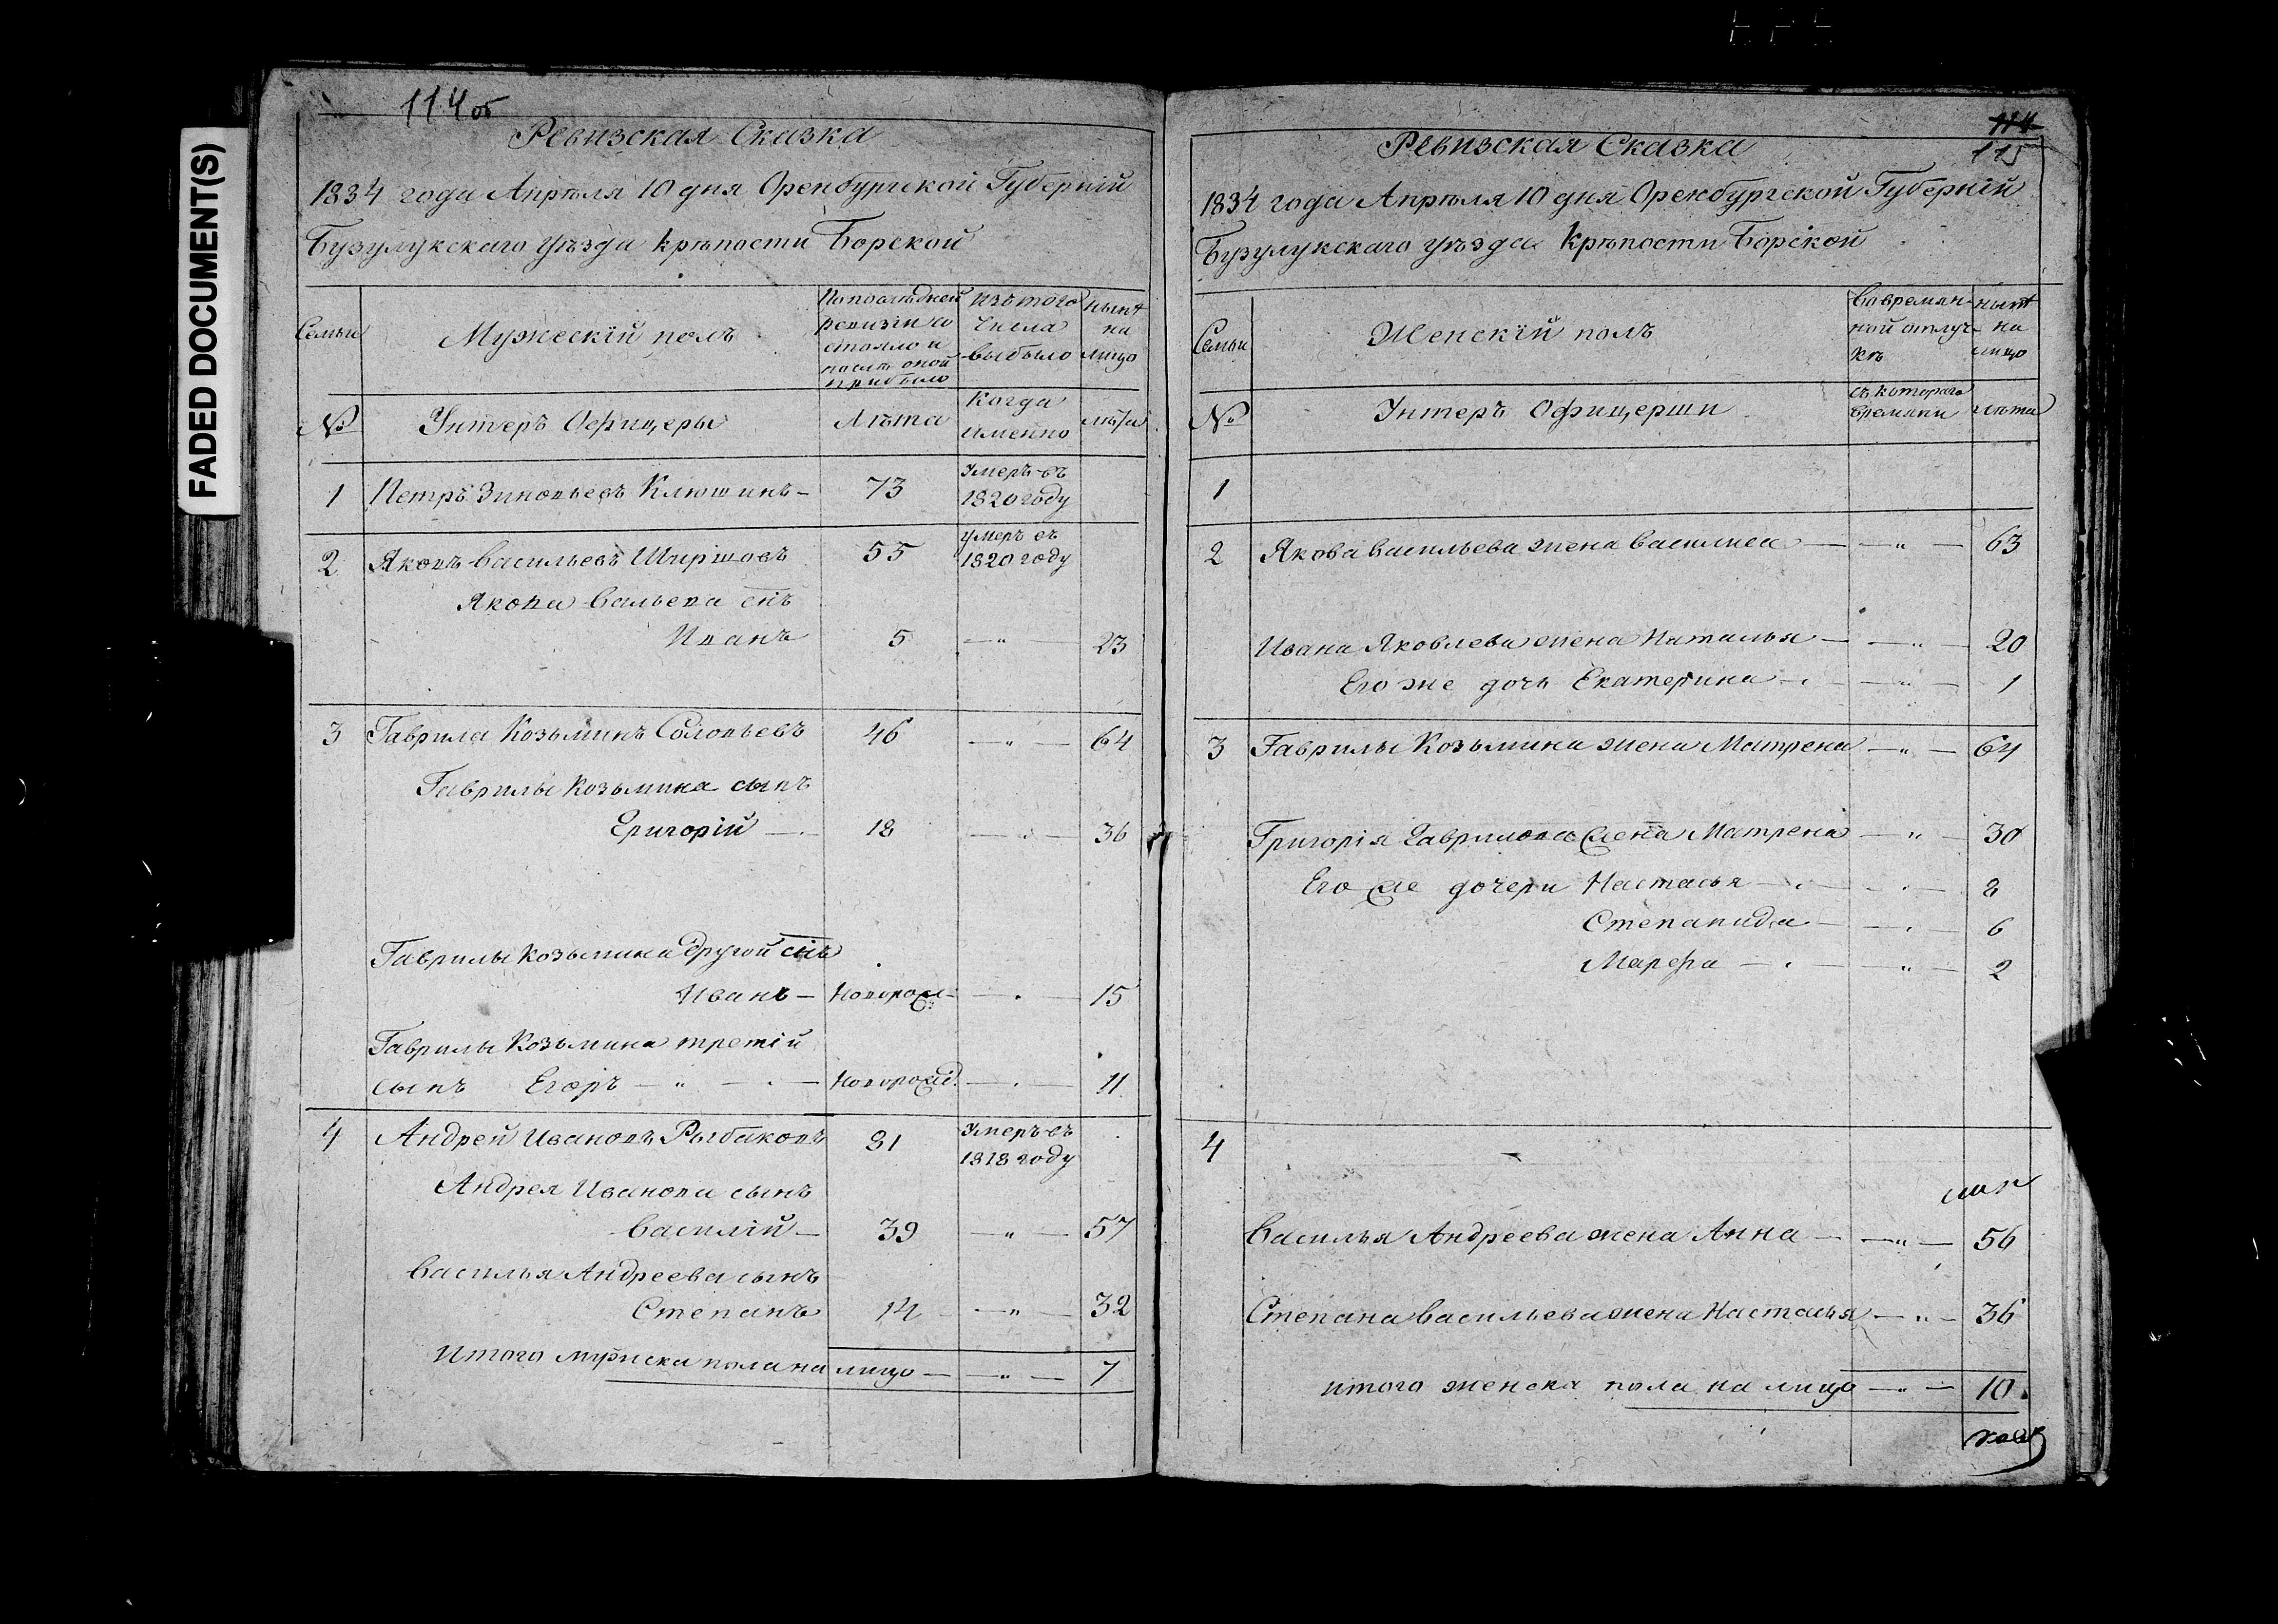 FADED DOCUMENT(S)
114 об
Ревизская Сказка
1834 года Апрѣля 10 дня Оренбургской Губерніи
Бузулукскаго уѣзда крѣпости Борской
Семьи
Мужескій полъ
По последней ревизіи состояло и послѣ оной прибыло
Изъ того числа выбыло
Нынѣ на лицо
№
Унтеръ Офицеры
Лѣта
Когда именно
лѣта
1 Петръ Зиновьевъ Клюшинъ 73 Умеръ въ 1820 году
2 Яковъ Васильевъ Ширшовъ 55 умеръ въ 1820 году
Якова Вальева снъ
Иванъ 5 — " — 23
3 Гаврила Козьминъ Соловьевъ 46 — " — 64
Гаврилы Козьмина сынъ
Григорій 18 — " — 36
Гаврилы Козьмина другой снъ
Иванъ — Новорож — 15
Гаврилы Козьмина третій
сынъ Егоръ — " — Новорожд. — 11
4 Андрей Ивановъ Рыбаковъ 81 Умеръ въ 1818 году
Андрея Иванова сынъ
Василій — 39 — " — 57
Василья Андреева сынъ
Степанъ 14 — " — 32
Итого мужска пола на лицо — " — 7
114
115
Ревизская Сказка
1834 года Апрѣля 10 дня Оренбургской Губерніи
Бузулукскаго уѣзда Крѣпости Борской
Семьи
Женскій полъ
Во времянной отлучкѣ
Нынѣ на лицо
№
Унтеръ Офицерши
съ котораго времяни
лѣта
1
2 Якова Васильева жена Василиса — " — 63
Ивана Яковлева жена Наталья — " — 20
Его же дочь Екатерина — " — 1
3 Гаврилы Козьмина жена Матрена — " — 64
Григорія Гаврилова жена Матрена — " — 30
Его же дочери Настасья — 8
Степанида — 6
Марфа — " — 2
4
Василья Андреева жена Анна — " — 56
Степана Васильева жена Настасья — " — 36
итого женска пола на лицо — " — 10.